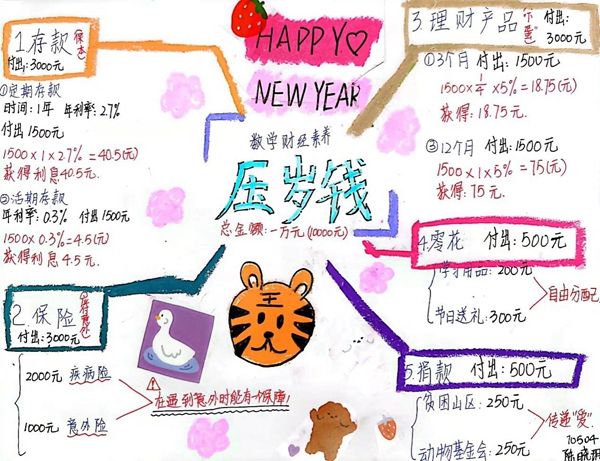 HAPPY♡
NEW YEAR
数学财经素养
压岁钱
总金额:一万元(10000元)
1.存款
付出:3000元
①定期存款
时间:1年 年利率:2.7%
付出1500元
1500×1×2.7%=40.5(元)
获得利息40.5元.
②活期存款
年利率:0.3% 付出1500元
1500×0.3%=4.5(元)
获得利息4.5元.
2.保险
付出:3000元
2000元 疾病险
1000元 意外险
在遇到意外时能有一份保障!
3.理财产品
付出:
3000元
①3个月 付出:1500元
1500×1/4×5%=18.75(元)
获得:18.75元.
②12个月 付出:1500元
1500×1×5%=75(元)
获得:75元.
4.零花 付出:500元
学习用品:200元
节日送礼:300元
自由分配
5.捐款 付出:500元
贫困山区:250元
动物基金会:250元
传递"爱".
10504